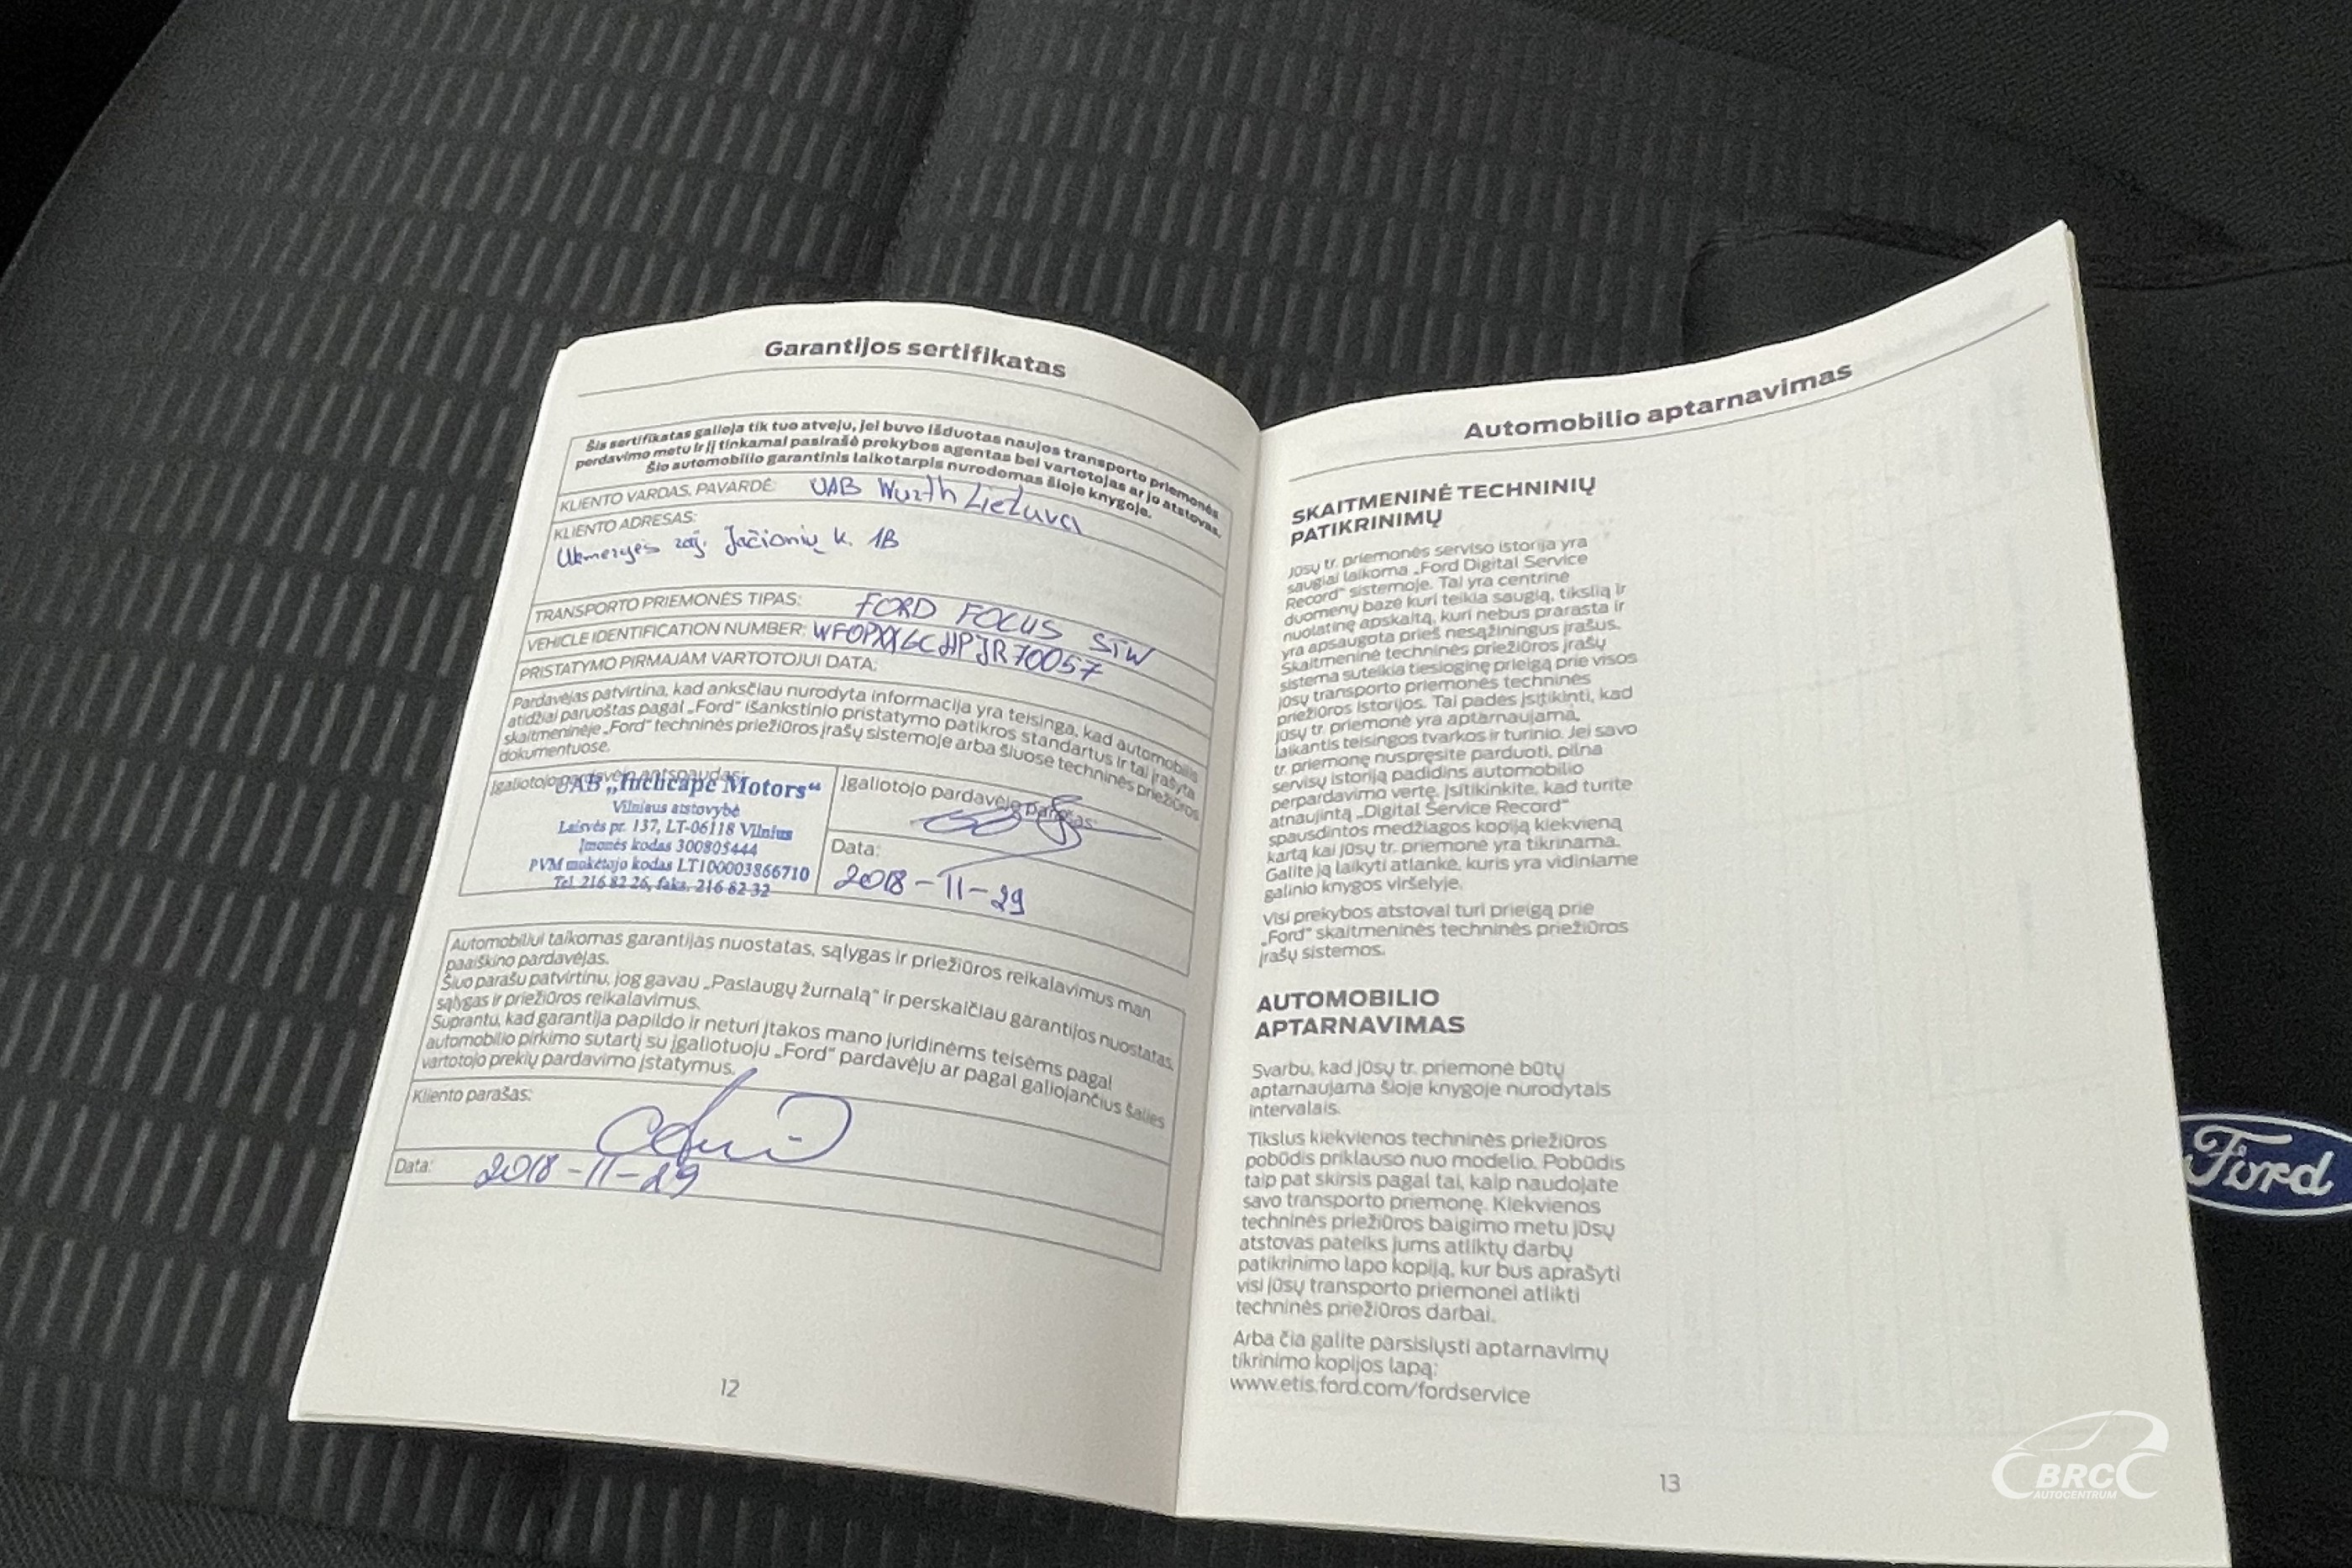 Garantijos sertifikatas
Šis sertifikatas galioja tik tuo atveju, jei buvo išduotas naujos transporto priemonės
perdavimo metu ir jį tinkamai pasirašė prekybos agentas bei vartotojas ar jo atstovas.
Šio automobilio garantinis laikotarpis nurodomas šioje knygoje.
KLIENTO VARDAS, PAVARDĖ: UAB Wurth Lietuva
KLIENTO ADRESAS:
Ukmergės raj. Jačionių k. 1B
TRANSPORTO PRIEMONĖS TIPAS: FORD FOCUS STW
VEHICLE IDENTIFICATION NUMBER: WF0PXXGCHPJR70057
PRISTATYMO PIRMAJAM VARTOTOJUI DATA:
Pardavėjas patvirtina, kad anksčiau nurodyta informacija yra teisinga, kad automobilis
atidžiai paruoštas pagal „Ford“ išankstinio pristatymo patikros standartus ir tai įrašyta
skaitmeninėje „Ford“ techninės priežiūros įrašų sistemoje arba šiuose techninės priežiūros
dokumentuose.
Įgaliotojo pardavėjo antspaudas:
UAB „Inchcape Motors“
Vilniaus atstovybė
Laisvės pr. 137, LT-06118 Vilnius
Įmonės kodas 300805444
PVM mokėtojo kodas LT100003866710
Tel. 216 82 26, faks. 216 82 32
Įgaliotojo pardavėjo parašas:
Data:
2018-11-29
Automobiliui taikomas garantijas nuostatas, sąlygas ir priežiūros reikalavimus man
paaiškino pardavėjas.
Šiuo parašu patvirtinu, jog gavau „Paslaugų žurnalą“ ir perskaičiau garantijos nuostatas,
sąlygas ir priežiūros reikalavimus.
Suprantu, kad garantija papildo ir neturi įtakos mano juridinėms teisėms pagal
automobilio pirkimo sutartį su įgaliotuoju „Ford“ pardavėju ar pagal galiojančius šalies
vartotojo prekių pardavimo įstatymus.
Kliento parašas:
Data: 2018-11-29
12
Automobilio aptarnavimas
SKAITMENINĖ TECHNINIŲ
PATIKRINIMŲ
Jūsų tr. priemonės serviso istorija yra
saugiai laikoma „Ford Digital Service
Record“ sistemoje. Tai yra centrinė
duomenų bazė kuri teikia saugią, tikslią ir
nuolatinę apskaitą, kuri nebus prarasta ir
yra apsaugota prieš nesąžiningus įrašus.
Skaitmeninė techninės priežiūros įrašų
sistema suteikia tiesioginę prieigą prie visos
jūsų transporto priemonės techninės
priežiūros istorijos. Tai padės įsitikinti, kad
jūsų tr. priemonė yra aptarnaujama,
laikantis teisingos tvarkos ir turinio. Jei savo
tr. priemonę nuspręsite parduoti, pilna
servisų istorija padidins automobilio
perpardavimo vertę. Įsitikinkite, kad turite
atnaujintą „Digital Service Record“
spausdintos medžiagos kopiją kiekvieną
kartą kai jūsų tr. priemonė yra tikrinama.
Galite ją laikyti atlanke, kuris yra vidiniame
galinio knygos viršelyje.
Visi prekybos atstovai turi prieigą prie
„Ford“ skaitmeninės techninės priežiūros
įrašų sistemos.
AUTOMOBILIO
APTARNAVIMAS
Svarbu, kad jūsų tr. priemonė būtų
aptarnaujama šioje knygoje nurodytais
intervalais.
Tikslus kiekvienos techninės priežiūros
pobūdis priklauso nuo modelio. Pobūdis
taip pat skirsis pagal tai, kaip naudojate
savo transporto priemonę. Kiekvienos
techninės priežiūros baigimo metu jūsų
atstovas pateiks jums atliktų darbų
patikrinimo lapo kopiją, kur bus aprašyti
visi jūsų transporto priemonei atlikti
techninės priežiūros darbai.
Arba čia galite parsisiųsti aptarnavimų
tikrinimo kopijos lapą:
www.etis.ford.com/fordservice
13
Ford
BRC
AUTOCENTRUM